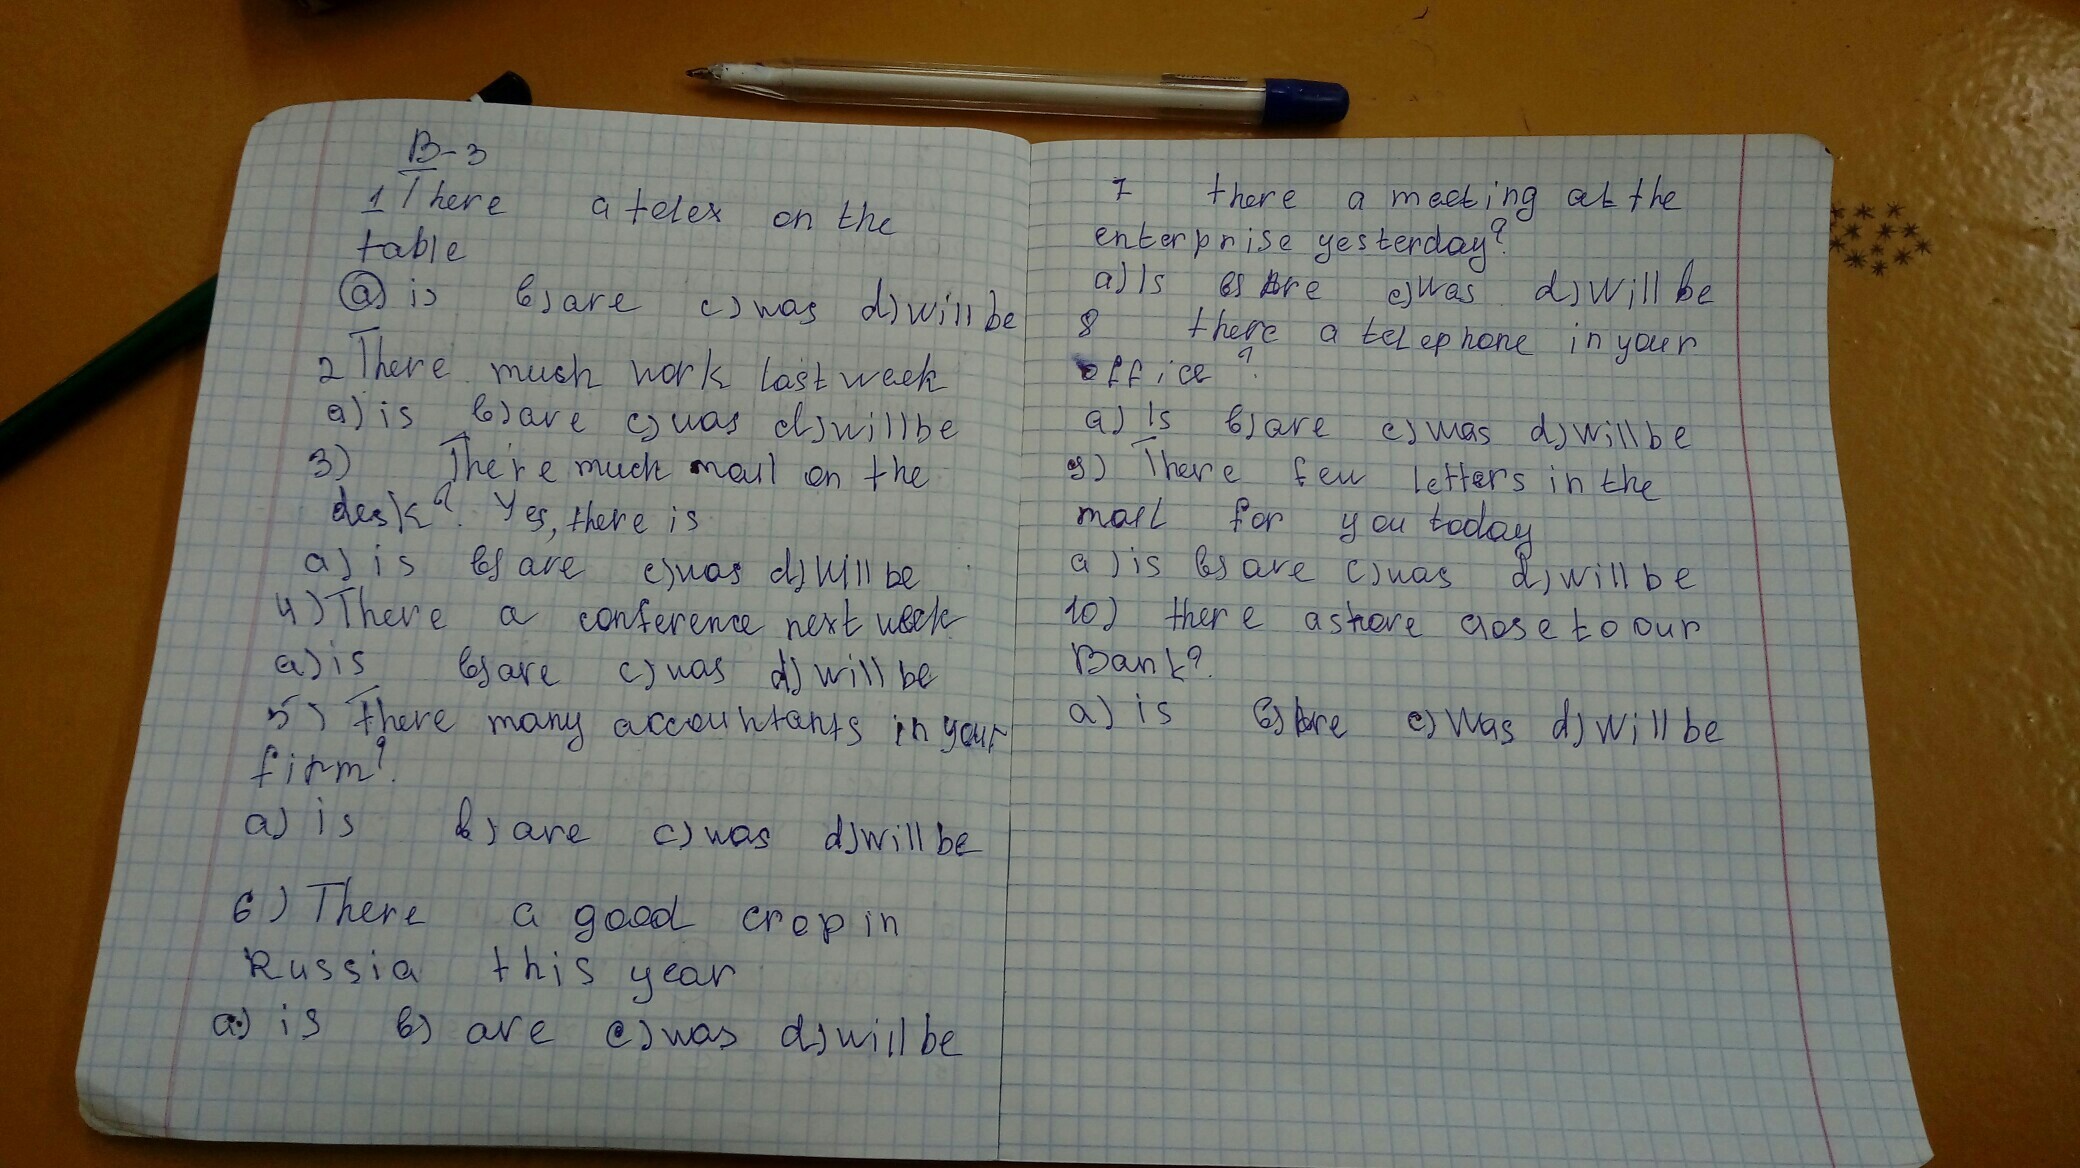 В-3
1 There a telex on the
table
a) is в) are c) was d) will be
2 There much work last week
a) is в) are c) was d) will be
3) There much mail on the
desk? Yes, there is
a) is в) are c) was d) Will be
4) There a conference next week
a) is в) are c) was d) will be
5) There many accountants in your
firm?
a) is в) are c) was d) will be
6) There a good crop in
Russia this year
a) is в) are c) was d) will be
7 there a meeting at the
enterprise yesterday?
a) Is в) Are c) Was d) Will be
8 there a telephone in your
office?
a) Is в) are c) was d) Will be
9) There few letters in the
mail for you today
a) is в) are c) was d) will be
10) there a store close to our
Bank?
a) is в) Are c) Was d) Will be